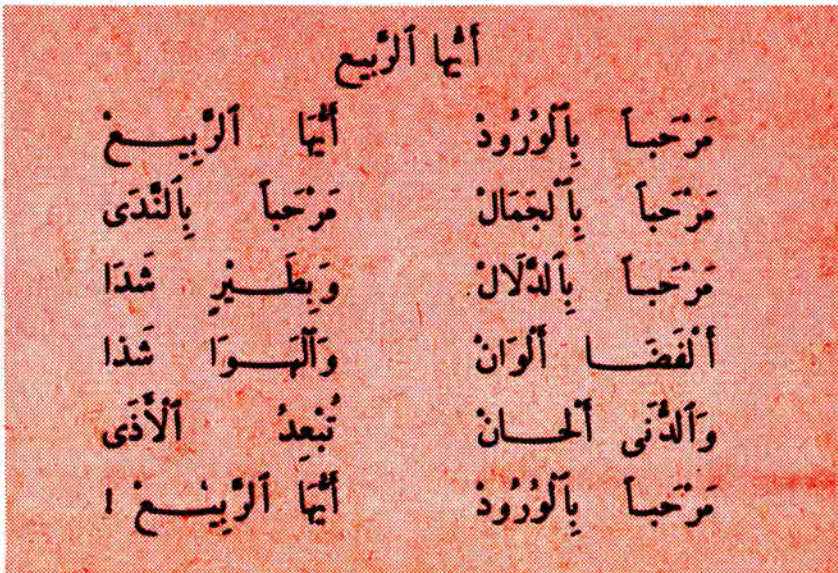 أَيُّها ٱلرَّبيع
مَرْحَباً بِٱلْوُرُودْ أَيُّهَا ٱلرَّبِيـــعْ
مَرْحَباً بِٱلْجَمَالْ مَرْحَباً بِٱلنَّدَى
مَرْحَباً بِٱلدَّلَالْ وَبِطَـــيْرٍ شَدَا
أَلْفَضَـــا أَلْوَانْ وَٱلْهَـــوَا شَذا
وَٱلدُّنَى أَلْحـــانْ تُبْعِدُ ٱلْأَذَى
مَرْحَبـاً بِٱلْوُرُودْ أَيُّهَا ٱلرَّبِيـــعْ !